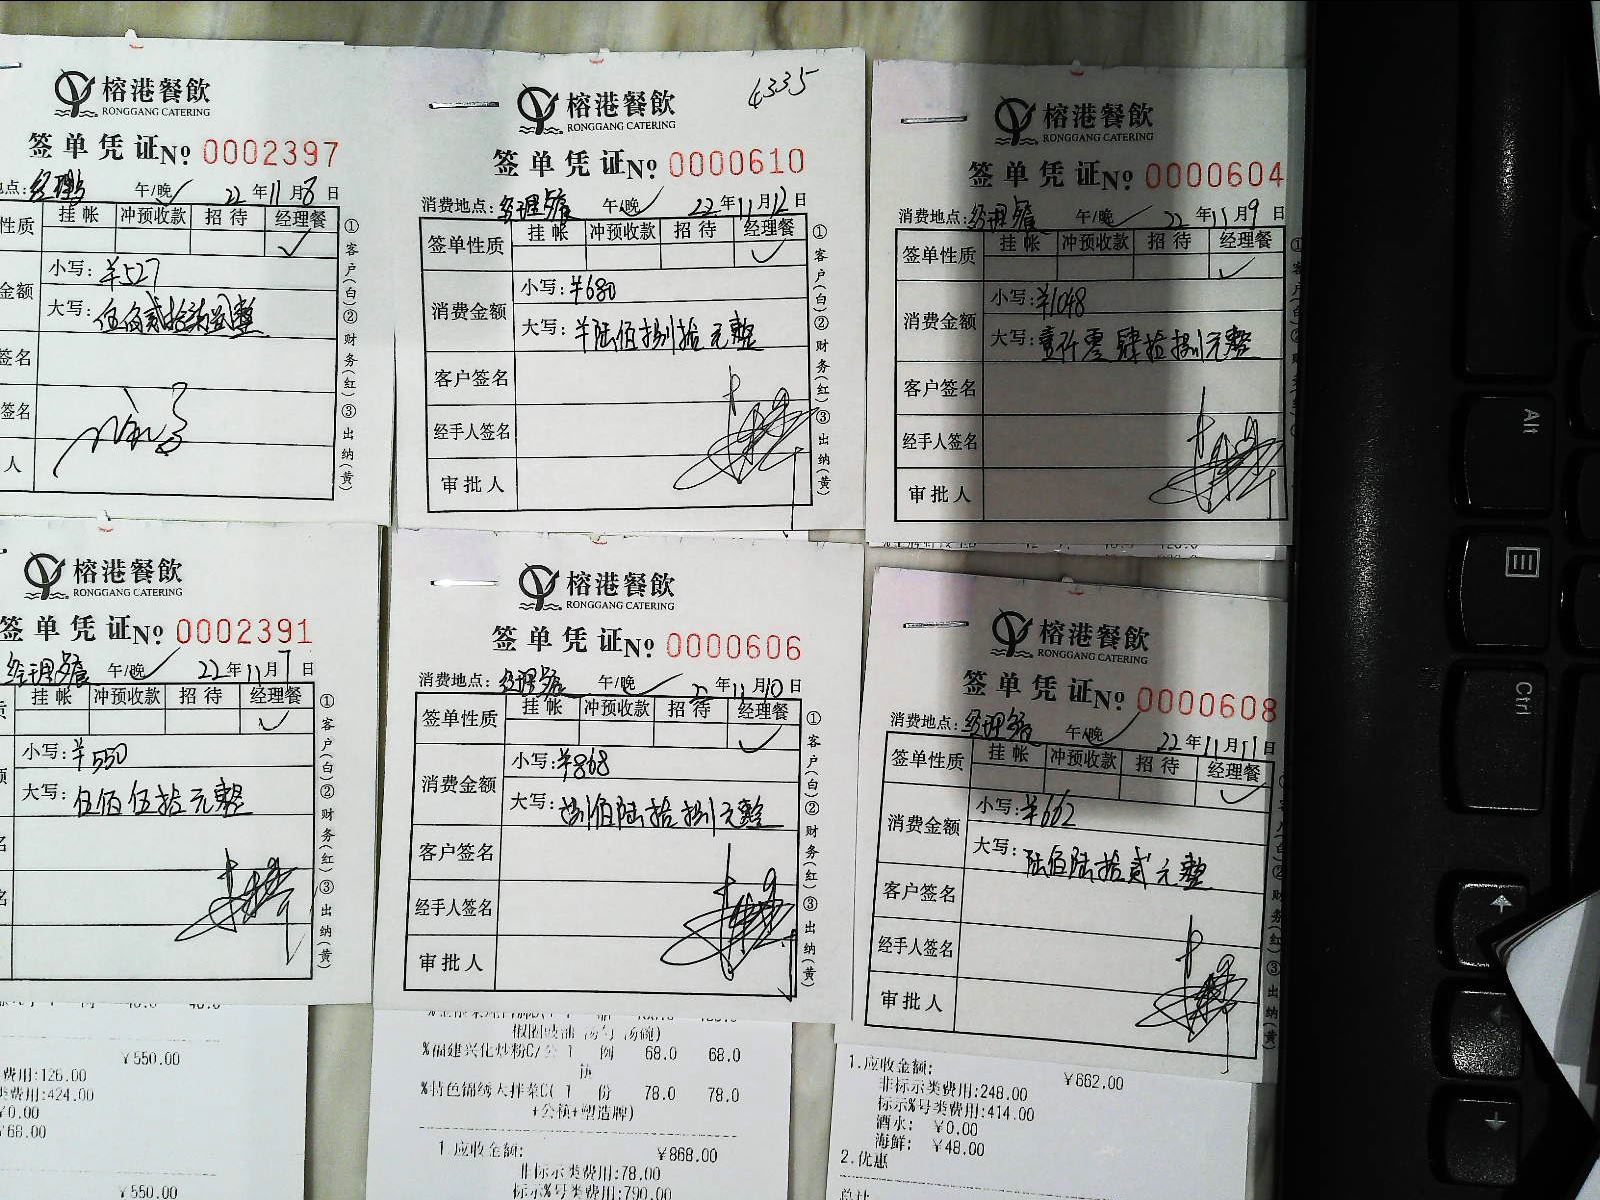 榕港餐飲
RONGGANG CATERING
签单凭证No 0002397
地点: 经理 午/晚 22年11月8日
性质 挂帐 冲预收款 招待 经理餐
金额 小写: ¥527
大写: 伍佰贰拾柒元整
签名
签名
人
①客户(白)②财务(红)③出纳(黄)
4335
榕港餐飲
RONGGANG CATERING
签单凭证No 0000610
消费地点: 经理餐 午/晚 22年11月12日
签单性质 挂帐 冲预收款 招待 经理餐
消费金额 小写: ¥680
大写: ¥陆佰捌拾元整
客户签名
经手人签名
审批人
①客户(白)②财务(红)③出纳(黄)
榕港餐飲
RONGGANG CATERING
签单凭证No 0000604
消费地点: 经理餐 午/晚 22年11月9日
签单性质 挂帐 冲预收款 招待 经理餐
消费金额 小写: ¥1048
大写: 壹仟零肆拾捌元整
客户签名
经手人签名
审批人
榕港餐飲
RONGGANG CATERING
签单凭证No 0002391
经理餐 午/晚 22年11月7日
挂帐 冲预收款 招待 经理餐
小写: ¥550
大写: 伍佰伍拾元整
①客户(白)②财务(红)③出纳(黄)
¥550.00
费用:126.00
类费用:424.00
¥0.00
¥68.00
¥550.00
榕港餐飲
RONGGANG CATERING
签单凭证No 0000606
消费地点: 经理餐 午/晚 22年11月10日
签单性质 挂帐 冲预收款 招待 经理餐
消费金额 小写: ¥868
大写: 捌佰陆拾捌元整
客户签名
经手人签名
审批人
①客户(白)②财务(红)③出纳(黄)
%福建兴化炒粉C/ 1 例 68.0 68.0
%特色锦绣大拌菜C( 1 份 78.0 78.0
+公筷+塑造牌)
1.应收金额: ¥868.00
非标示类费用:78.00
标示%号类费用:790.00
榕港餐飲
RONGGANG CATERING
签单凭证No 0000608
消费地点: 经理餐 午/晚 22年11月11日
签单性质 挂帐 冲预收款 招待 经理餐
消费金额 小写: ¥662
大写: 陆佰陆拾贰元整
客户签名
经手人签名
审批人
1.应收金额: ¥662.00
非标示类费用:248.00
标示%号类费用:414.00
酒水: ¥0.00
海鲜: ¥48.00
2.优惠
总计
Alt
Ctrl